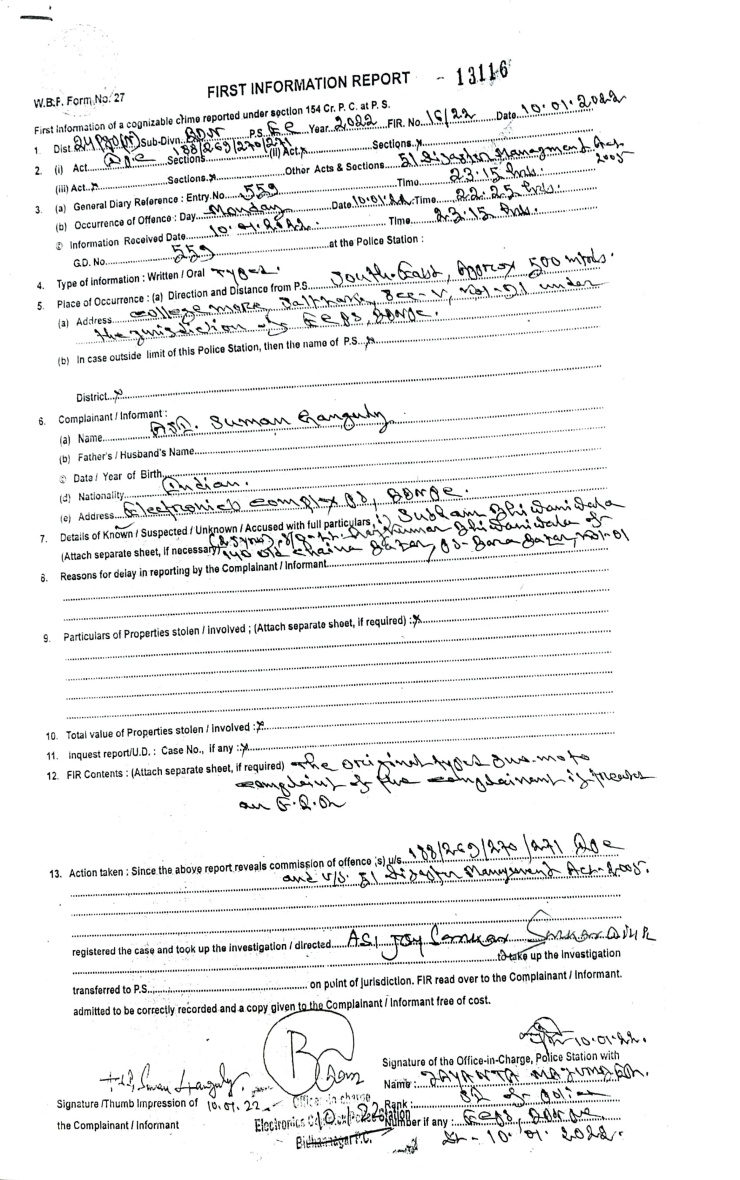 FIRST INFORMATION REPORT - 13116
W.B.F. Form No. 27
First Information of a cognizable crime reported under section 154 Cr. P. C. at P. S.
1 Dist. 24 PGS(N) Sub-Divn. BDN P.S. EC Year 2022 FIR. No. 16/22 Date 10.01.2022
2. (i) Act IPC Sections 188/269/270/271 (II) Act x Sections x
(iii) Act x Sections x Other Acts & Sections 51 Disaster Management Act 2005
3. (a) General Diary Reference : Entry No. 559 Time 23.15 hrs.
(b) Occurrence of Offence : Day Monday Date 10.01.22 Time 22.25 hrs.
© Information Received Date 10.01.2022. Time 23.15 hrs.
G.D. No. 559 at the Police Station :
4. Type of information : Written / Oral Typed.
5. Place of Occurrence : (a) Direction and Distance from P.S. South-East, Approx 500 mtrs.
(a) Address College more, Saltlake, Sec-V, Kol-91 under
the jurisdiction of ECPS, BDNPC.
(b) In case outside limit of this Police Station, then the name of P.S. x
District x
6. Complainant / Informant :
(a) Name ASI. Suman Ganguly
(b) Father's / Husband's Name
© Date / Year of Birth
(d) Nationality Indian.
(e) Address Electronics complex PS, BDNPC.
7. Details of Known / Suspected / Unknown / Accused with full particulars, i) Subham Bhiwaniwala
(Attach separate sheet, if necessary) Rajkumar Bhiwaniwala of
140 old China Bazar, PS- Bara Bazar, Kol-01
8. Reasons for delay in reporting by the Complainant / Informant
9. Particulars of Properties stolen / involved ; (Attach separate sheet, if required) : x
10. Total value of Properties stolen / involved : x
11. Inquest report/U.D. : Case No., if any : x
12. FIR Contents : (Attach separate sheet, if required) The original typed suo-moto
complaint of the complainant is treated
as F.I.R
13. Action taken : Since the above report reveals commission of offence ;s) u/s 188/269/270/271 IPC
and U/S. 51 Disaster Management Act-2005.
registered the case and took up the investigation / directed ASI Joy Sankar Sarkar
to take up the investigation
transferred to P.S. on point of jurisdiction. FIR read over to the Complainant / Informant.
admitted to be correctly recorded and a copy given to the Complainant / Informant free of cost.
10.01.22.
Signature of the Office-in-Charge, Police Station with
Suman Ganguly.
Name : JAYANTA MAZUMDER.
Signature /Thumb Impression of 10.01.22
Office-in-charge
Rank : SI of Police
the Complainant / Informant
Electronics Complex Police Station
Number if any : ECPS, BDNPC
Bidhannagar P.C.
Dt - 10.01.2022.